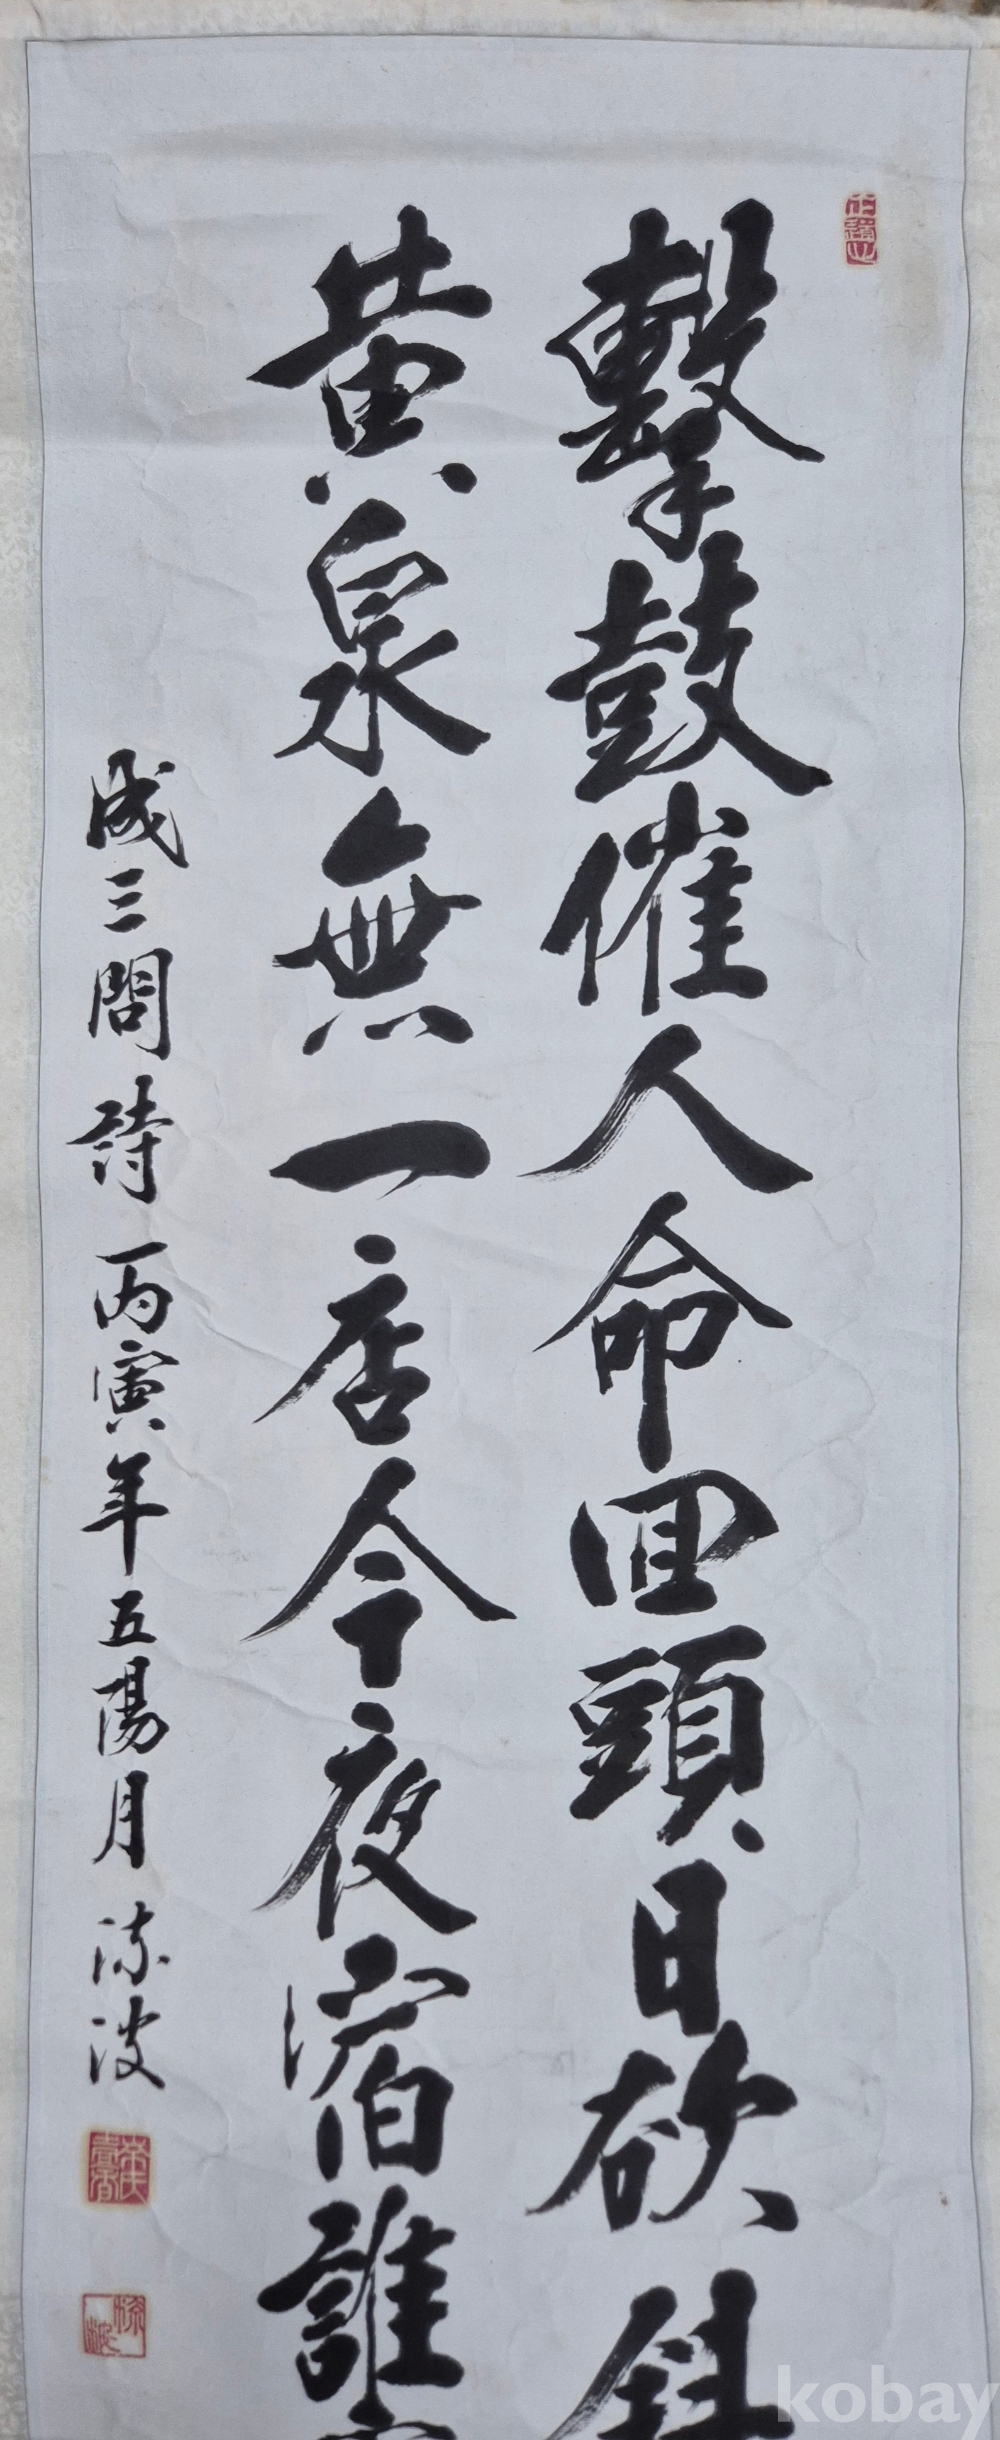 擊鼓催人命回頭日欲斜
黃泉無一店今夜宿誰
成三問詩 丙寅年五陽月 流波
kobay